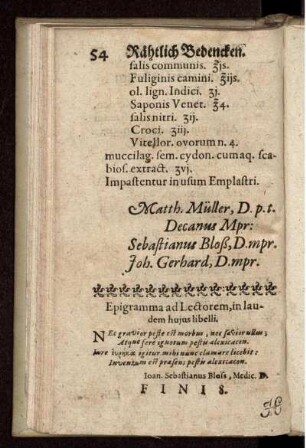 54 Rähtlich Bedencken.
salis communis. ℥js.
Fuliginis camini. ℥ijs.
ol. lign. Indici. ʒj.
Saponis Venet. ℥4.
salis nitri. ʒij.
Croci. ʒiij.
Vitellor. ovorum n. 4.
muccilag. sem. cydon. cum aq. sca-
bios. extract. ʒvj.
Impastentur in usum Emplastri.
Matth. Müller, D. p. t.
Decanus Mpr:
Sebastianus Bloß, D. mpr.
Joh. Gerhard, D. mpr.
Epigramma ad Lectorem, in lau-
dem hujus libelli.
NEc gravior peste est morbus, nec sævior ullus;
Atque ferè ignotum pestis alexicacon.
Iure igitur mihi nunc clamare licebit:
Inventum est præsens pestis alexicacon.
Ioan. Sebastianus Bloss, Medic. D.
FINIS.